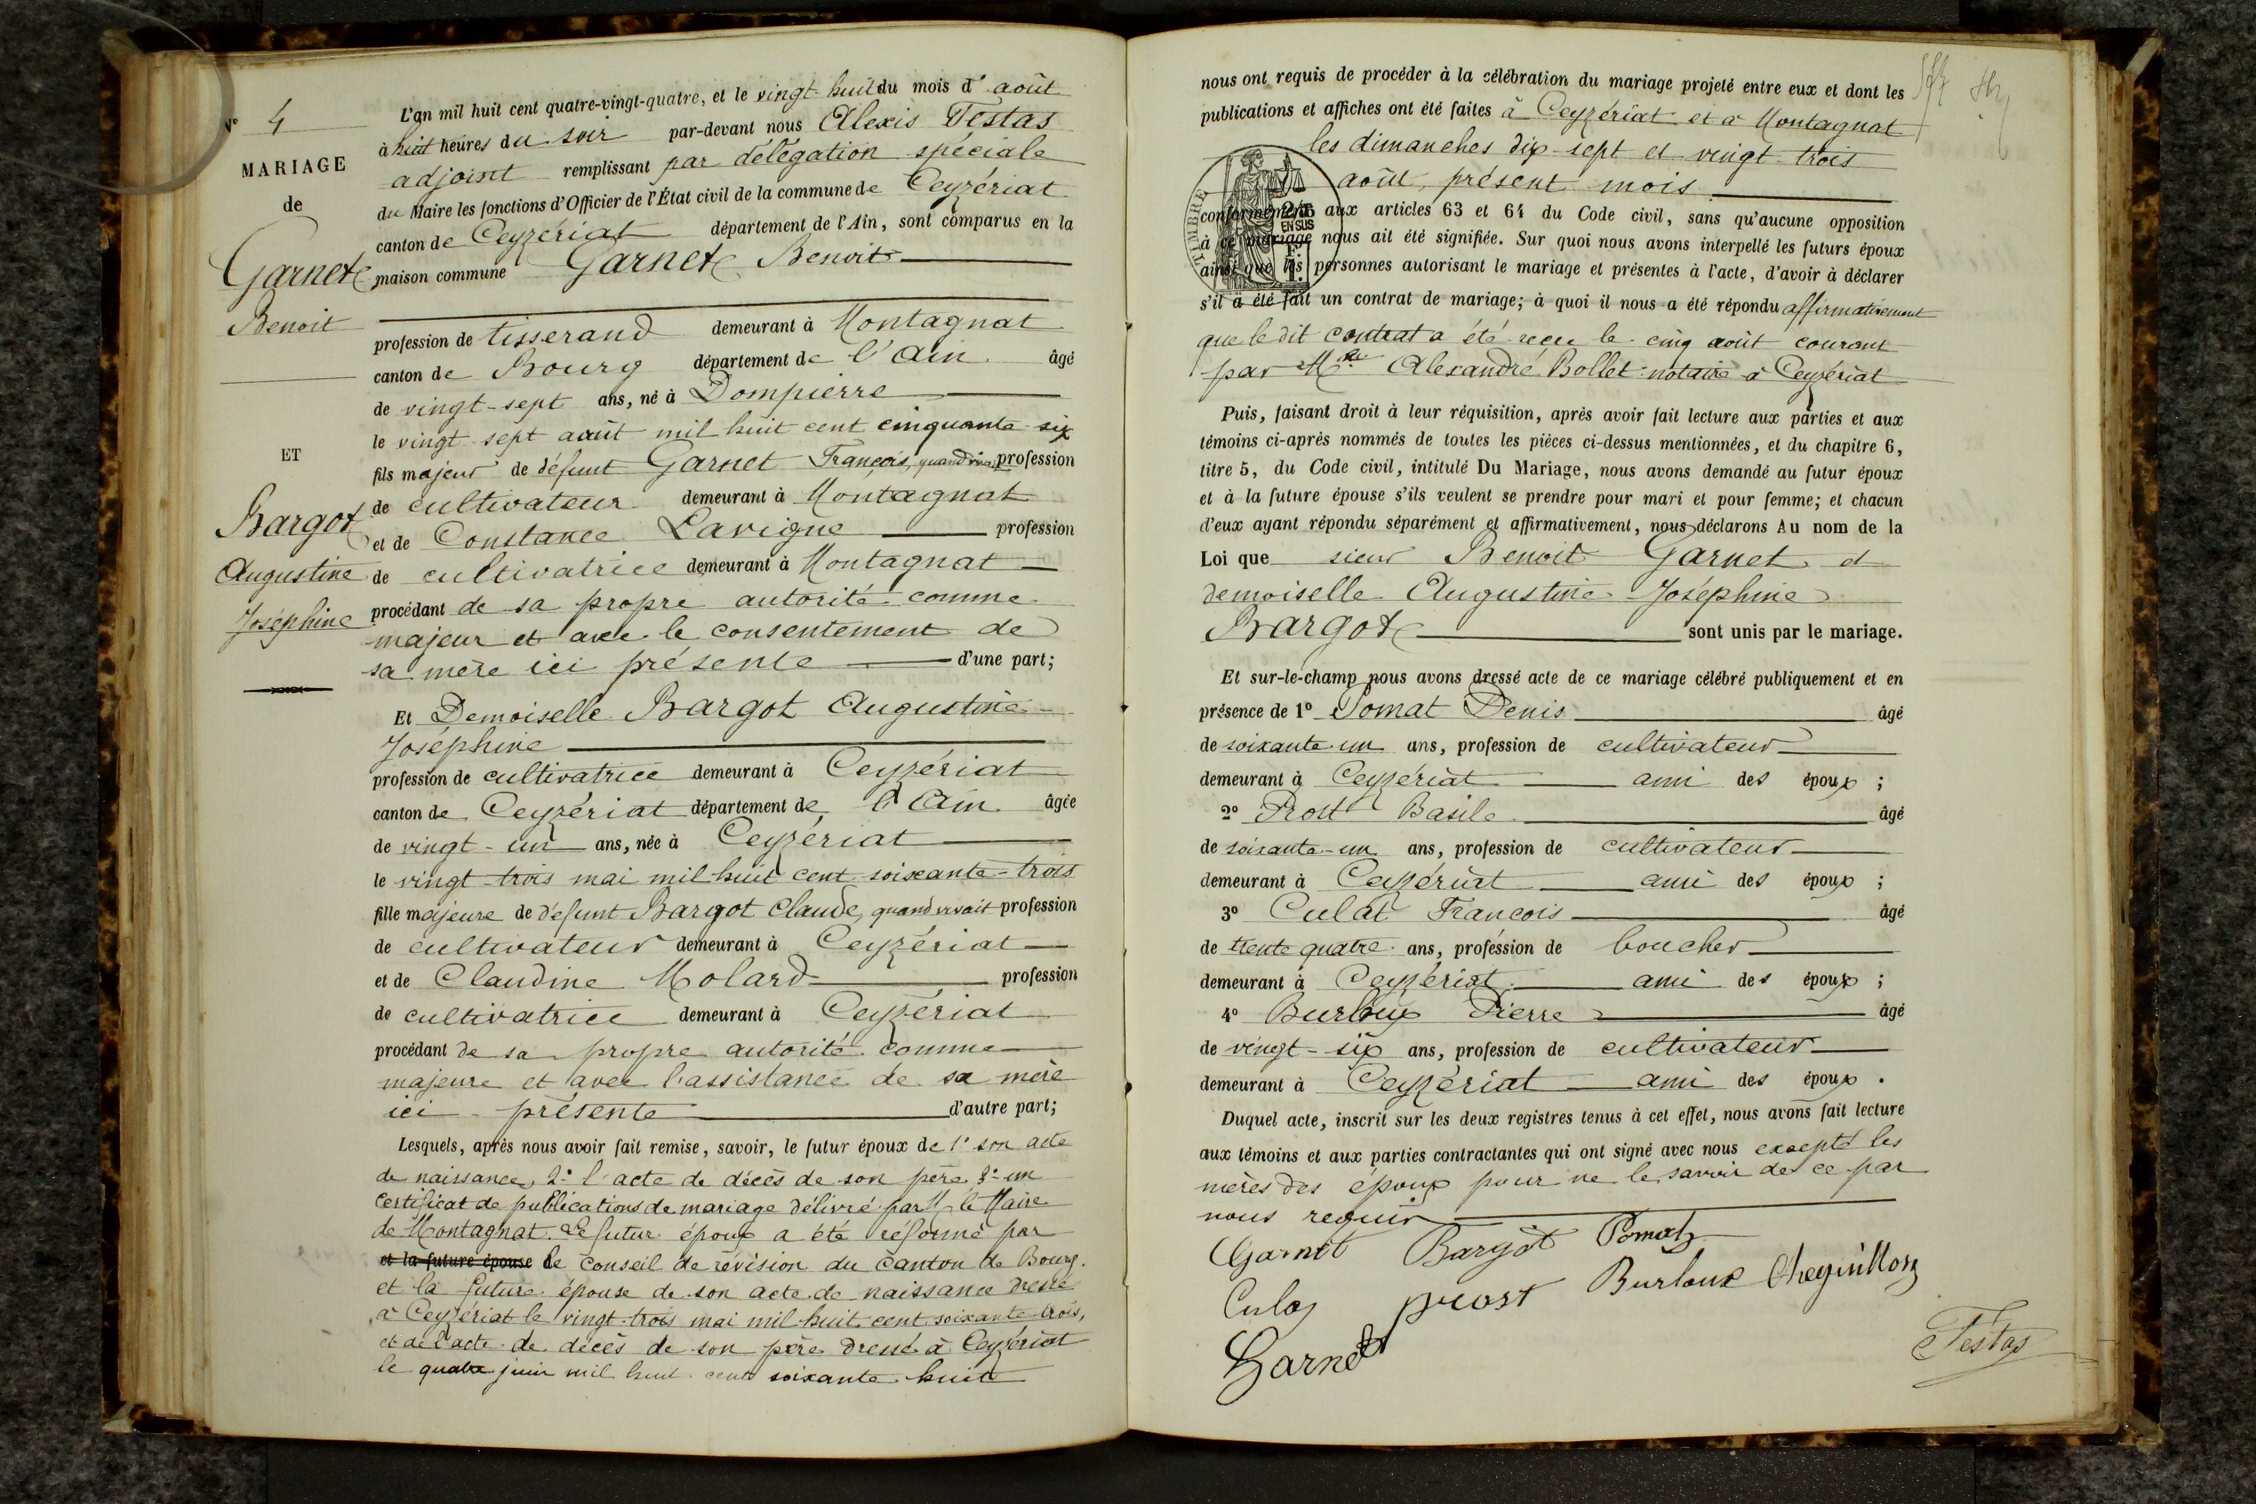 N° 4
MARIAGE
de
Garnet
Benoit
ET
Bargot
Augustine
Joséphine
L'an mil huit cent quatre-vingt-quatre, et le vingt huit du mois d'août
à huit heures du soir par-devant nous Alexis Testas
adjoint remplissant par délégation spéciale
du Maire les fonctions d'Officier de l'État civil de la commune de Ceyzériat
canton de Ceyzériat département de l'Ain, sont comparus en la
maison commune Garnet Benoit
profession de tisserand demeurant à Montagnat
canton de Bourg département de l'Ain âgé
de vingt-sept ans, né à Dompierre
le vingt sept août mil huit cent cinquante six
fils majeur de défunt Garnet François, quand vivait profession
de cultivateur demeurant à Montagnat
et de Constance Lavigne profession
de cultivatrice demeurant à Montagnat
procédant de sa propre autorité comme
majeur et avec le consentement de
sa mère ici présente d'une part;
Et Demoiselle Bargot Augustine
Joséphine
profession de cultivatrice demeurant à Ceyzériat
canton de Ceyzériat département de l'Ain âgée
de vingt-un ans, née à Ceyzériat
le vingt-trois mai mil huit cent soixante-trois
fille majeure de défunt Bargot Claude, quand vivait profession
de cultivateur demeurant à Ceyzériat
et de Claudine Molard profession
de cultivatrice demeurant à Ceyzériat
procédant de sa propre autorité comme
majeure et avec l'assistance de sa mère
ici présente d'autre part;
Lesquels, après nous avoir fait remise, savoir, le futur époux de 1° son acte
de naissance, 2° l'acte de décès de son père 3° un
certificat de publications de mariage délivré par M. le Maire
de Montagnat. Le futur époux a été réformé par
et la future épouse le conseil de révision du canton de Bourg.
et la future épouse de son acte de naissance dressé
à Ceyzériat le vingt-trois mai mil huit cent soixante trois,
et de l'acte de décès de son père dressé à Ceyzériat
le quatre juin mil huit cent soixante huit
nous ont requis de procéder à la célébration du mariage projeté entre eux et dont les
publications et affiches ont été faites à Ceyzériat et à Montagnat
les dimanches dix-sept et vingt-trois
août, présent mois
conformément aux articles 63 et 64 du Code civil, sans qu'aucune opposition
à ce mariage nous ait été signifiée. Sur quoi nous avons interpellé les futurs époux
ainsi que les personnes autorisant le mariage et présentes à l'acte, d'avoir à déclarer
s'il a été fait un contrat de mariage; à quoi il nous a été répondu affirmativement
que le dit contrat a été reçu le cinq août courant
par Me Alexandre Bollet notaire à Ceyzériat
TIMBRE
2/10
EN SUS
Puis, faisant droit à leur réquisition, après avoir fait lecture aux parties et aux
témoins ci-après nommés de toutes les pièces ci-dessus mentionnées, et du chapitre 6,
titre 5, du Code civil, intitulé Du Mariage, nous avons demandé au futur époux
et à la future épouse s'ils veulent se prendre pour mari et pour femme; et chacun
d'eux ayant répondu séparément et affirmativement, nous déclarons Au nom de la
Loi que sieur Benoit Garnet et
demoiselle Augustine Joséphine
Bargot sont unis par le mariage.
Et sur-le-champ nous avons dressé acte de ce mariage célébré publiquement et en
présence de 1° Pomat Denis âgé
de soixante-un ans, profession de cultivateur
demeurant à Ceyzériat ami des époux;
2° Prost Basile âgé
de soixante-un ans, profession de cultivateur
demeurant à Ceyzériat ami des époux;
3° Culat François âgé
de trente quatre ans, profession de boucher
demeurant à Ceyzériat ami des époux;
4° Burloux Pierre âgé
de vingt-six ans, profession de cultivateur
demeurant à Ceyzériat ami des époux.
Duquel acte, inscrit sur les deux registres tenus à cet effet, nous avons fait lecture
aux témoins et aux parties contractantes qui ont signé avec nous excepté les
mères des époux pour ne le savoir de ce par
nous requis
Garnet Bargot Pomat
Culat prost Burloux
Garnet Testas